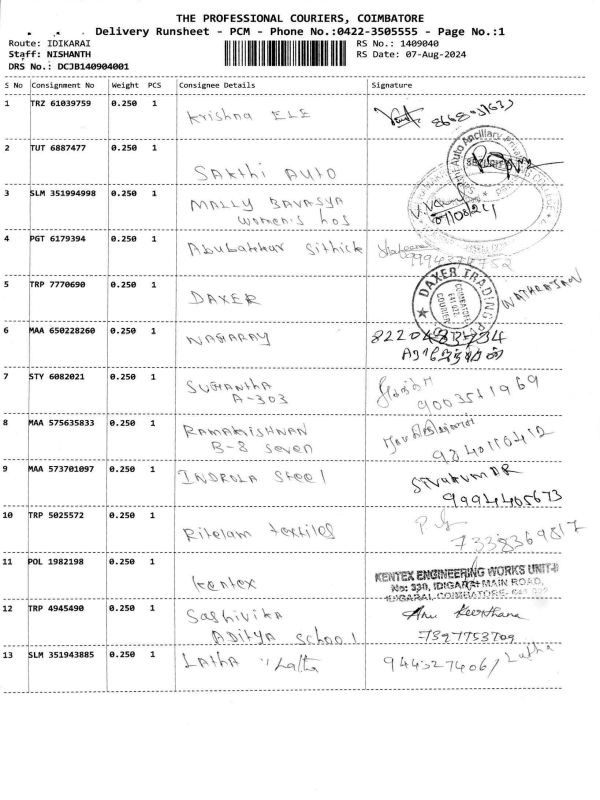 THE PROFESSIONAL COURIERS, COIMBATORE
Delivery Runsheet - PCM - Phone No.:0422-3505555 - Page No.:1
Route: IDIKARAI RS No.: 1409040
Staff: NISHANTH RS Date: 07-Aug-2024
DRS No.: DCJB140904001
S No Consignment No Weight PCS Consignee Details Signature
1 TRZ 61039759 0.250 1 Krishna ELE
2 TUT 6887477 0.250 1 SAKthi AUTO
3 SLM 351994998 0.250 1 MALLY BAVASYA
women's hos
4 PGT 6179394 0.250 1 Abubakkar Sithick
5 TRP 7770690 0.250 1 DAXER
DAXER TRADING
COIMBATORE
641 022
6 MAA 650228260 0.250 1 NAGARAY
7 STY 6082021 0.250 1 SUGANthA
A-303
9003511969
8 MAA 575635833 0.250 1 RAMAKRISHNAN
B-8 Seven
9840110412
9 MAA 573701097 0.250 1 INDROLA Steel
SIVAKUMAR
9994405673
10 TRP 5025572 0.250 1 Ritelam textiles
7338369817
11 POL 1982198 0.250 1 Kentex
KENTEX ENGINEERING WORKS UNIT-II
No: 330, IDIGARAI MAIN ROAD,
IDIGARAI, COIMBATORE-641 022
12 TRP 4945490 0.250 1 Sashivika
ADITYA School
Anu Keerthana
7397753709
13 SLM 351943885 0.250 1 LAthA "Latha
944527406/ Lutha